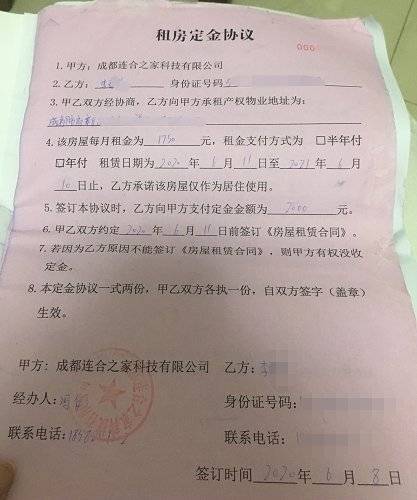 租房定金协议
000
1.甲方：成都连合之家科技有限公司
2.乙方： 身份证号码
3.甲乙双方经协商，乙方向甲方承租产权物业地址为：
4.该房屋每月租金为 1750 元，租金支付方式为 □半年付
□年付 租赁日期为 2020 年 6 月 11 日至 2021 年 6 月
10 日止，乙方承诺该房屋仅作为居住使用。
5.签订本协议时，乙方向甲方支付定金金额为 2000 元。
6.甲乙双方约定 2020 年 6 月 11 日前签订《房屋租赁合同》。
7.若因为乙方原因不能签订《房屋租赁合同》，则甲方有权没收
定金。
8.本定金协议一式两份，甲乙双方各执一份，自双方签字（盖章）
生效。
甲方：成都连合之家科技有限公司 乙方：
经办人： 身份证号码：
联系电话： 联系电话：
签订时间 2020 年 6 月 8 日